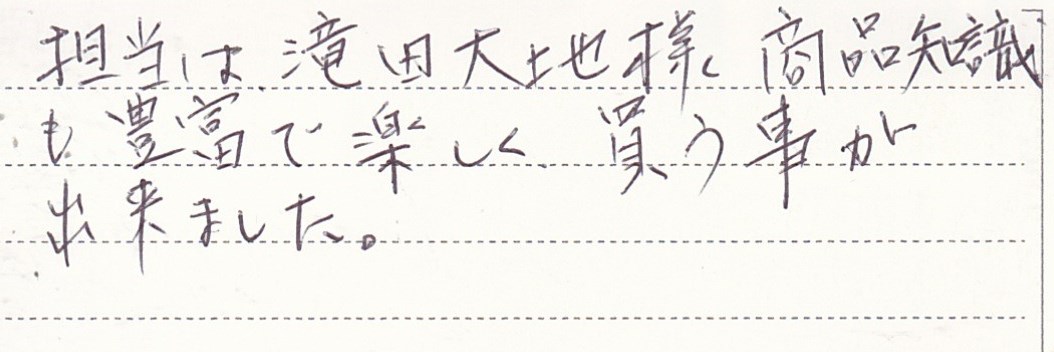 担当は滝田大地様、商品知識
も豊富で楽しく買う事が
出来ました。